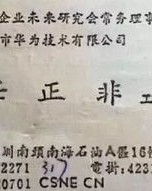 企业未来研究会常务理事
市华为技术有限公司
正非
圳南頭南海石油A區16
2271 317 電掛:4231
0701 CSNE CN